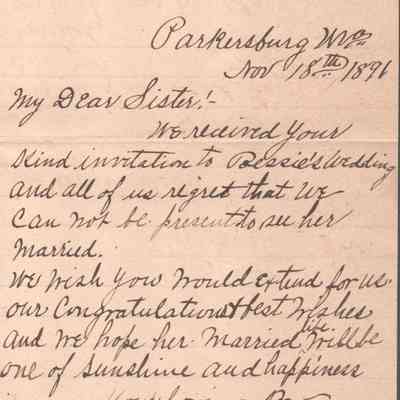 Parkersburg W Va
Nov 18th 1891
My Dear Sister!-
We received Your
Kind invitation to Bessie's Wedding
and all of us regret that We
Can not be present to see her
Married.
We Wish You Would Extend for us
our Congratulations & best Wishes
and We hope her Married life Will be
one of Sunshine and happiness